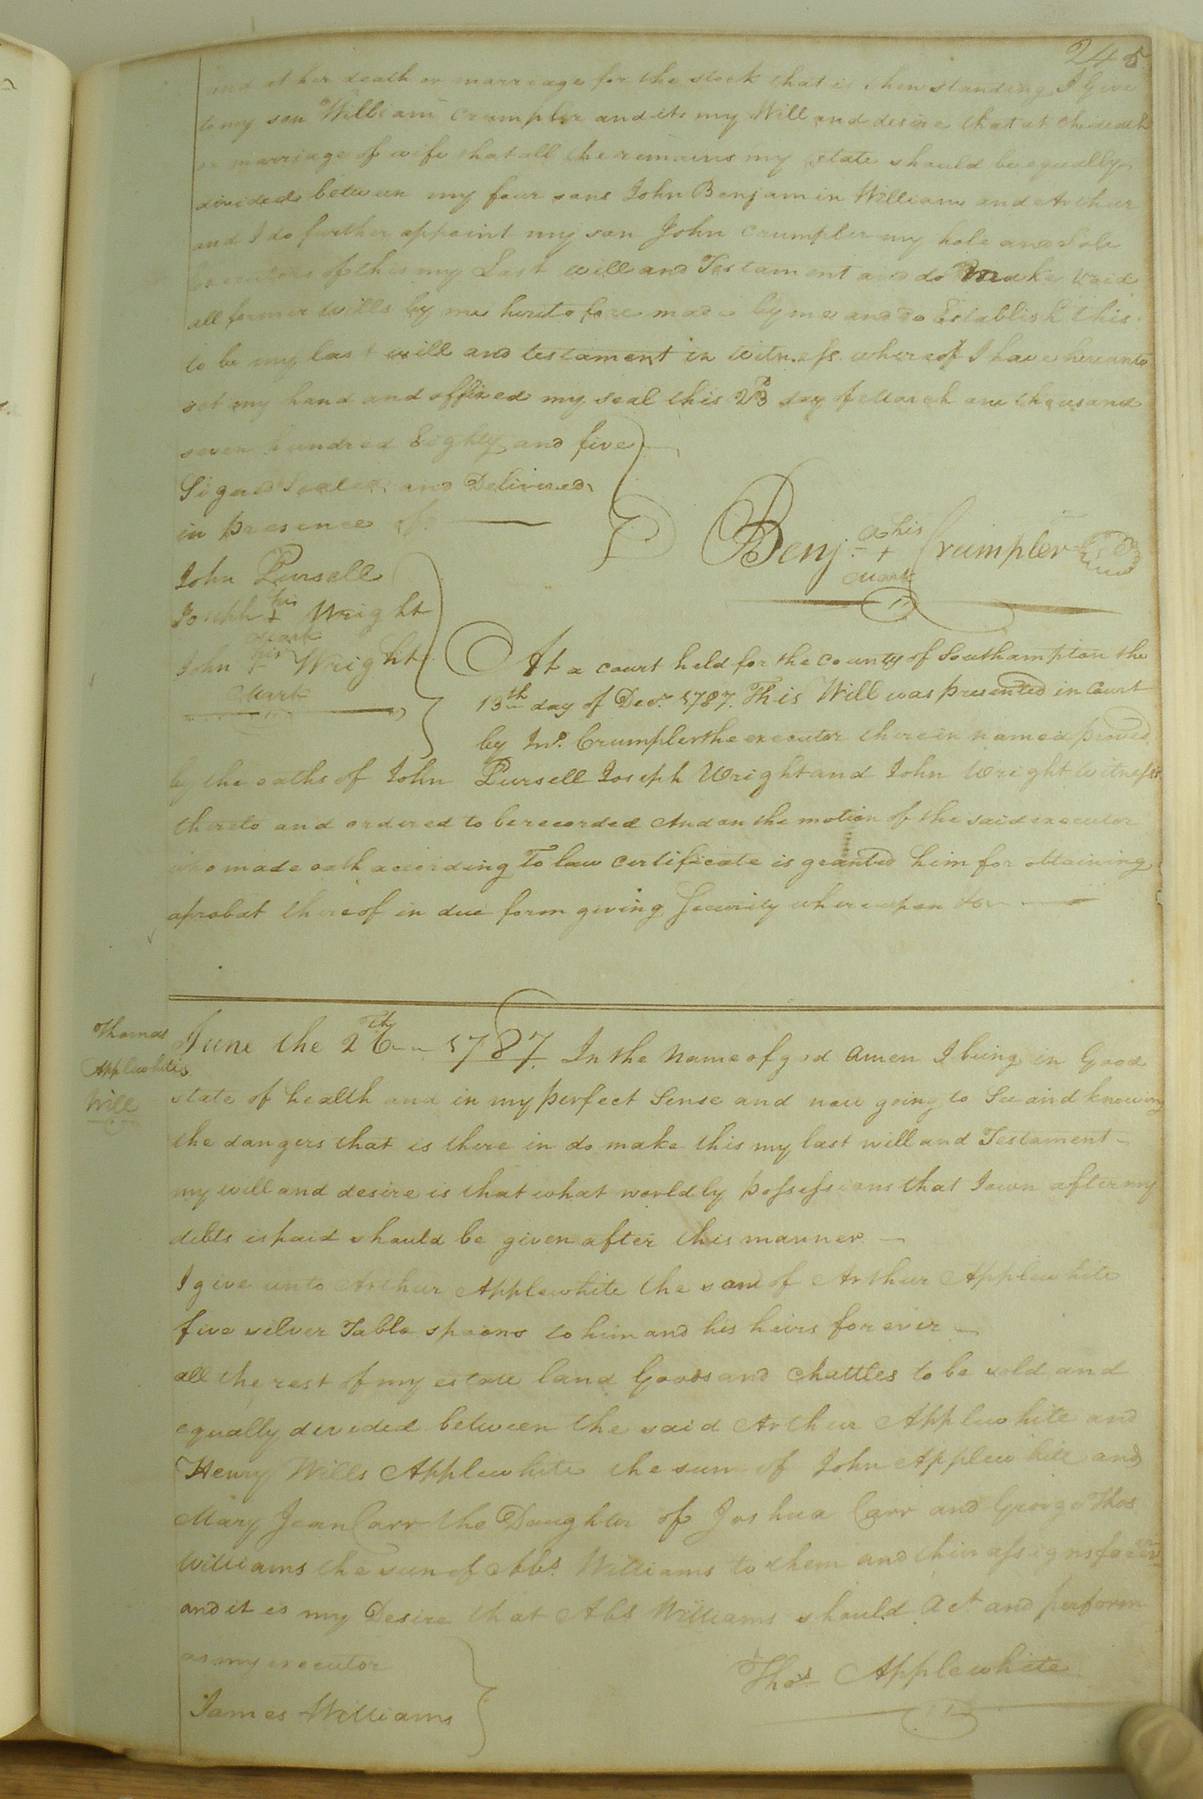 245
and at her death or marriage for the stock that is then standing I Give
to my son William Crumpler and its my Will and desire that at the death
or marriage of wife that all the remains my state should be equally
divided between my four sons John Benjamin William and Arthur
and I do further appoint my son John Crumpler my hole and Sole
Executors of this my Last will and Testament and do Make void
all former wills by me hereto fore made by me and do Establish this
to be my last will and testament in witness whereof I have hereunto
set my hand and affixed my seal this 23 day March one thousand
seven hundred Eighty and five
Signed Sealed and Delivered
in presence of
Benj. his + mark Crumpler
John Pursell
Joseph his + mark Wright
John his + mark Wright
At a court held for the County of Southampton the
13th day of Decr. 1787. This Will was presented in Court
by Jno. Crumpler the executor therein named proved
by the oaths of John Pursell Joseph Wright and John Wright witness
thereto and ordered to be recorded And on the motion of the said executor
who made oath according To law certificate is granted him for obtaining
aprobat thereof in due form giving Security whereupon
Thomas
Applewhites
Will
June the 26th 1787. In the Name of god Amen I being in Good
state of health and in my perfect Sense and now going to Sea and knowing
the dangers that is there in do make this my last will and Testament
my will and desire is that what worldly possessions that I own after my
debts is paid should be given after this manner
I give unto Arthur Applewhite the son of Arthur Applewhite
five silver Table spoons to him and his heirs for ever
all the rest of my estate land Goods and Chattles to be sold and
equally devided between the said Arthur Applewhite and
Henry Wills Applewhite the sun of John Applewhite and
Mary Jean Carr the Daughter of Joshua Carr and George Thos
Williams the sun of Abs. Williams to them and their assigns forever
and it is my Desire that Abs Williams should Act and perform
as my executor
Thos. Applewhite
James Williams